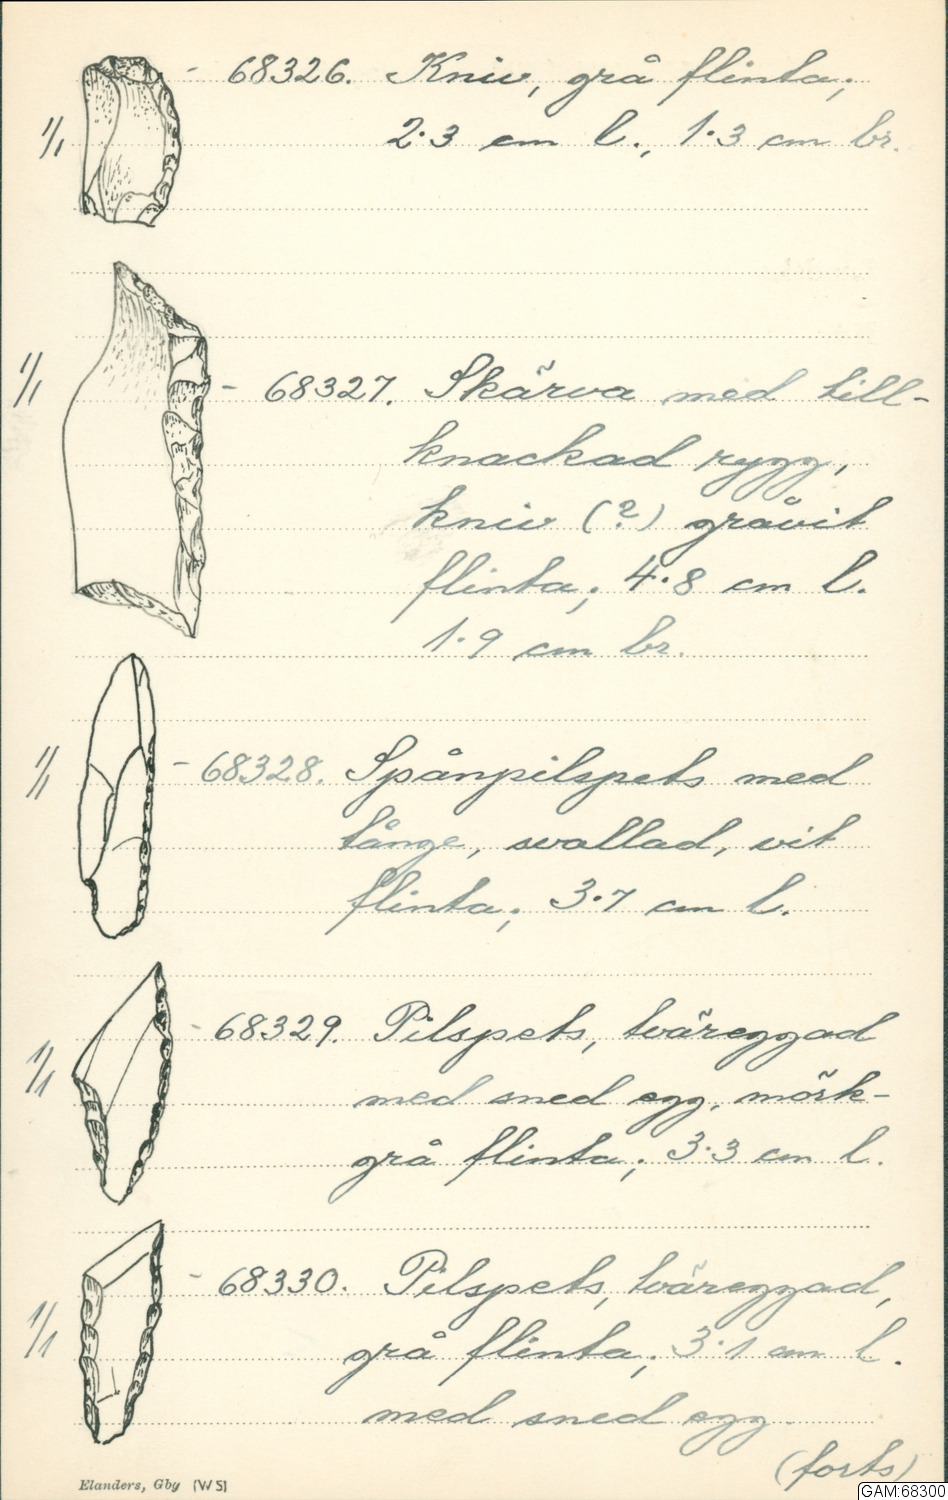 1/1 - 68326. Kniv, grå flinta;
2.3 cm l., 1.3 cm br.
1/1 - 68327. Skärva med till-
knackad rygg,
kniv (?) gråvit
flinta; 4.8 cm l.
1.9 cm br.
1/1 - 68328. Spånpilspets med
tånge, svallad, vit
flinta; 3.7 cm l.
1/1 - 68329. Pilspets, tväreggad
med sned egg, mörk-
grå flinta; 3.3 cm l.
1/1 - 68330. Pilspets, tväreggad,
grå flinta; 3.1 cm l.
med sned egg.
(forts)
Elanders, Gby (W S)
GAM:68300